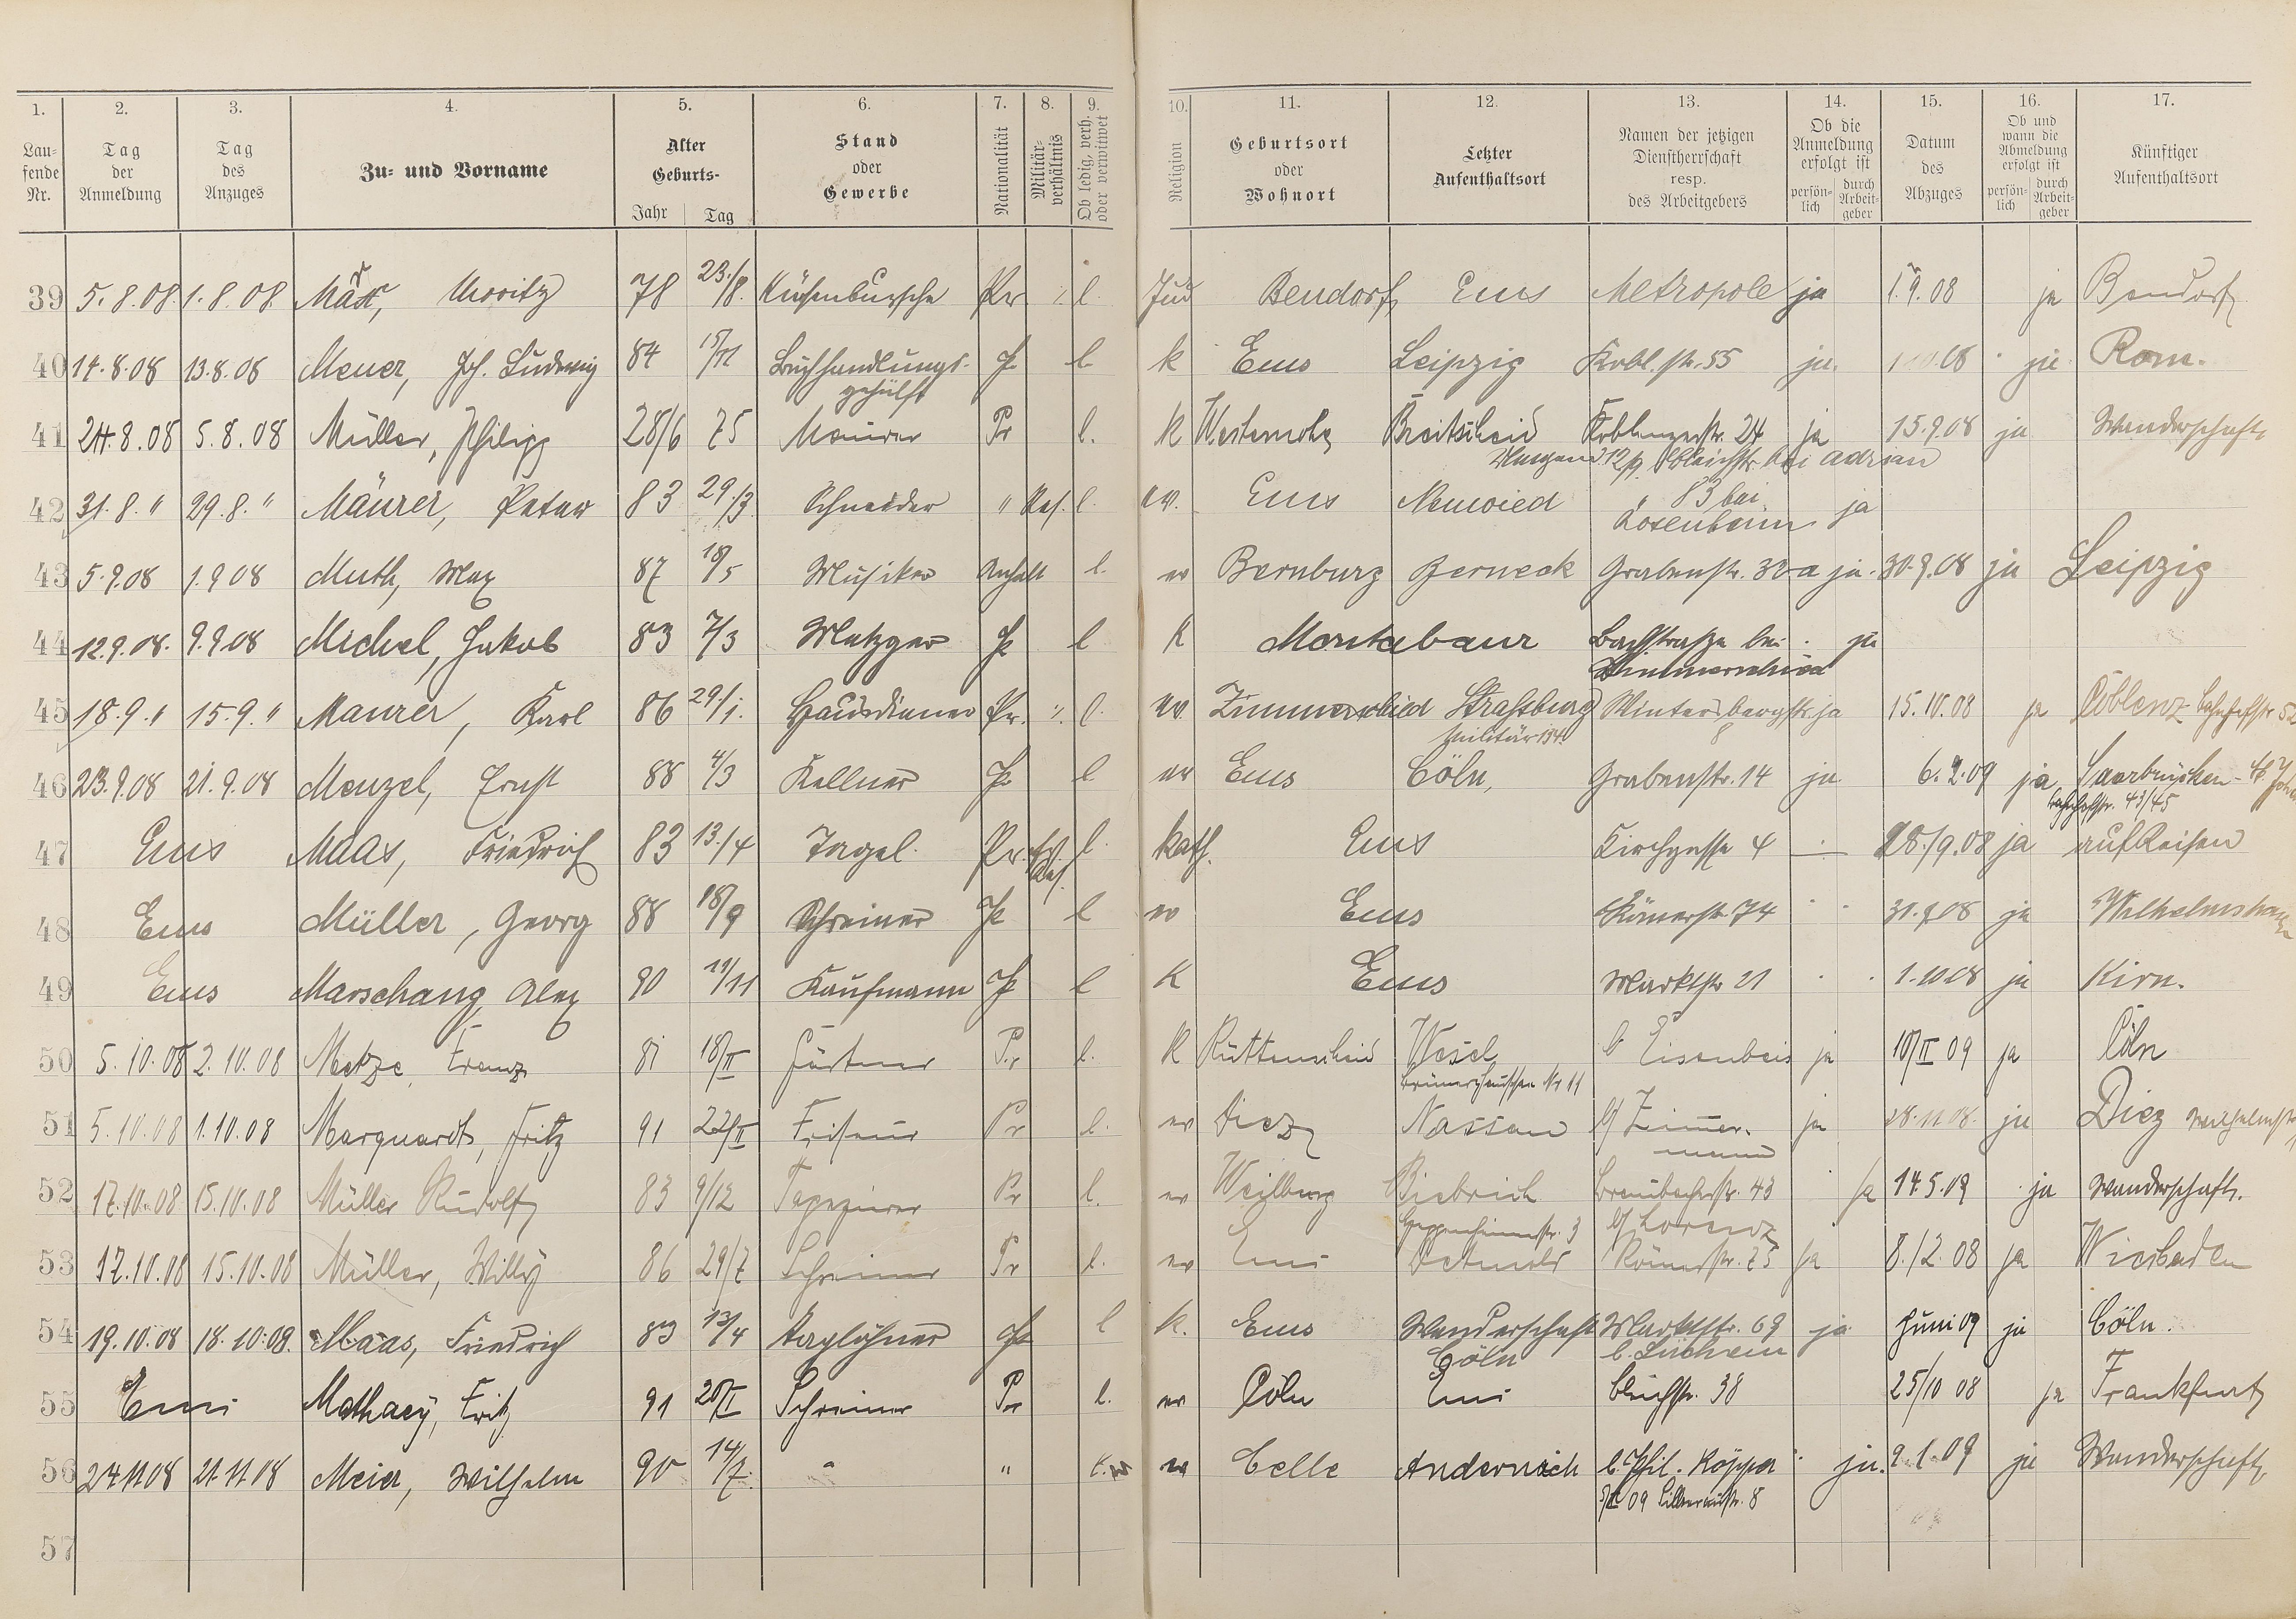 1. 2. 3. 4. 5. 6. 7. 8. 9. 10. 11. 12. 13. 14. 15. 16. 17.
Lau-fende Nr. Tag der Anmeldung Tag des Anzuges Zu- und Vorname Alter Geburts- Jahr Tag Stand oder Gewerbe Nationalität Militär-verhältnis Ob ledig, verh. oder verwitwet Religion Geburtsort oder Wohnort Letzter Aufenthaltsort Namen der jetzigen Dienstherrschaft resp. des Arbeitgebers Ob die Anmeldung erfolgt ist persön-lich durch Arbeit-geber Datum des Abzuges Ob und wann die Abmeldung erfolgt ist persön-lich durch Arbeit-geber Künftiger Aufenthaltsort
39 5.8.08. 1.8.08. Moritz 78 23./8. Küchenbursche Pr l. Jud Bendorf Ems Metropole ja 1.9.08 ja Bendorf
40 14.8.08 13.8.08 Meuer, Joh. Ludwig 84 15/11 Buchhandlungs- P l. k Ems Leipzig Kobl.str. 55 ja. ja Rom.
gehülfe
41 24.8.08 5.8.08 Müller, Philipp 28/6 75 Maurer Pr l. K Westernohe Breitscheid Koblenzerstr. 24 ja 15.9.08 ja Wanderschaft
Bleichstr. bei Adrian
42 31.8. " 29.8. " Mäurer, Peter 83 29./3. Schneider " Res. l. ev. Ems Neuwied " 83 bei ja
Rosenbaum
43 5.9.08 1.9 08 Muth, Max 87 18/5 Musiker Anhalt l. ev Bernburg Berneck Grabenstr. 30 a ja. 30.9.08 ja Leipzig
44 12.9.08. 9.9.08 Michel, Jakob 83 7/3 Metzger P l K Montabaur Bachstraße bei ja
Zimmerschied
45 18.9. " 15.9. " Maurer, Karl 86 29./1. Hausdiener Pr. ". l. ev. Zimmerschied Straßburg Wintersbergstr. ja 15.10.08 ja Coblenz Bahnhofstr 52
Militär 134. 8
46 23.9.08 21.9.08 Menzel, Ernst 88 4/3 Kellner P l ev Ems Cöln, Grabenstr. 14 ja 6.2.09 ja Saarbrücken - St. Joh
Bahnhofstr. 43/45
47 Ems Maas, Friedrich 83 13./4 Tagel. Pr. Ers. Res. l. kath. Ems Kirchgasse 4 — 28./9.08 ja auf Reisen
48 Ems Müller, Georg 88 18/9 Schreiner P l ev Ems Römerstr 74 31.9.08 ja Wilhelmshaven
49 Ems Marschang, Alex 90 11/11 Kaufmann P l K Ems Marktstr 21 1.10.08 ja Kirn.
50 5.10.08 2.10.08 Metze, Franz 81 18/II Gärtner Pr l. K Rüttenscheid Wesel b Eisenbeis ja 10/II 09 ja Cöln
Nr 11
51 5.10.08 1.10.08 Marquardt, Fritz 91 22/II Friseur Pr l. ev Diez Nassau b/ Zimmer- ja 28.11.08. ja Diez Wilhelmstr
mann
52 17.10.08 15.10.08 Müller Rudolf 83 9/12 Tapezierer Pr l. ev Weilburg Biebrich Braubacherstr. 43 ja 14.5.09 ja Wanderschaft.
str. 3 b/ Lorenz
53 17.10.08 15.10.08 Müller, Willy 86 29/7 Schreiner Pr l. ev Ems Detmold Römerstr. 75 ja 8.12.08 ja Wiesbaden
54 19.10.08 18.10.08. Maas, Friedrich 83 13/4 Taglöhner P l k. Ems Wanderschaft Marktstr. 69 ja Juni 09 ja Cöln.
Cöln
55 Ems Mathaey, Fritz 91 20/I Schreiner Pr l. ev Cöln Ems Bleichstr. 38 25/10 08 ja Frankfurt
56 24.11.08 21.11.08 Meier, Wilhelm 90 14/7. " " ev Celle Andernach b. Phil. Köpper ja. 2.1.09 ja Wanderschaft
09 str. 8
57